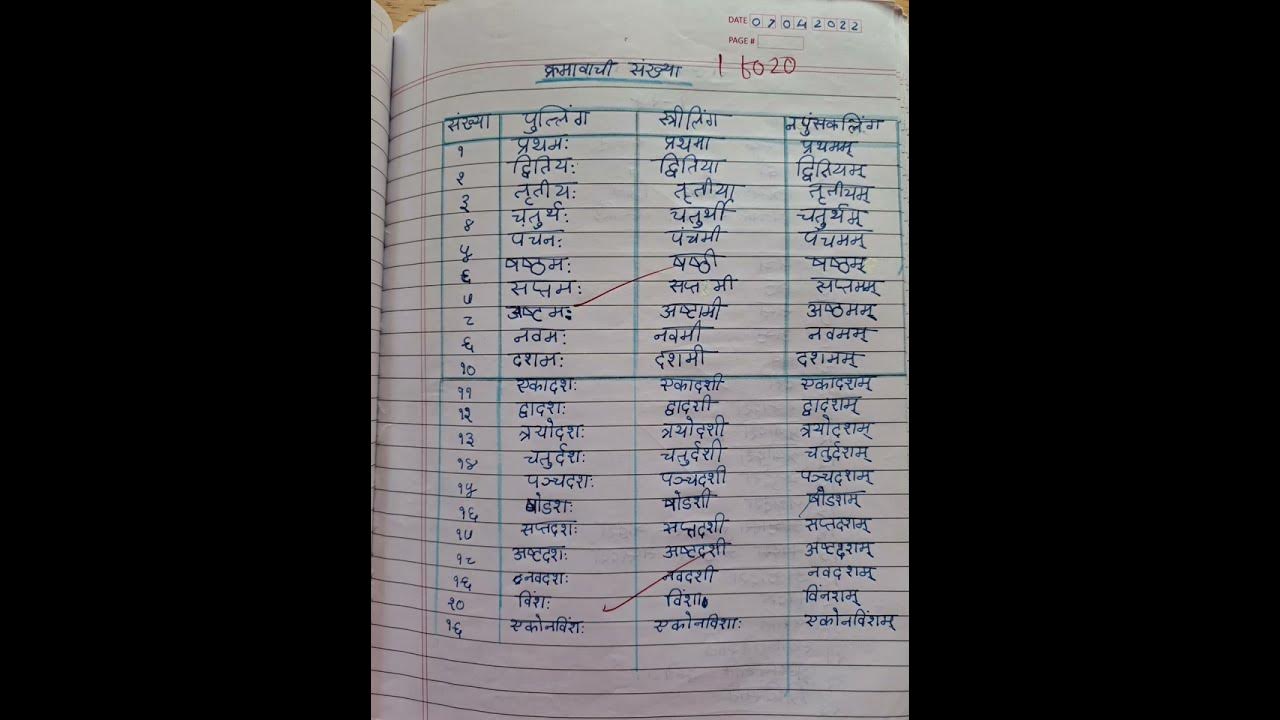 DATE 07 04 2022
PAGE #
क्रमावाची संख्या 1 to 20
संख्या पुल्लिंग स्त्रीलिंग नपुंसकलिंग
१ प्रथमः प्रथमा प्रथमम्
२ द्वितियः द्वितिया द्वितियम्
३ तृतीयः तृतीया तृतीयम्
४ चतुर्थः चतुर्थी चतुर्थम्
५ पंचनः पंचमी पंचमम्
६ षष्ठमः षष्ठी षष्ठम्
७ सप्तमः सप्तमी सप्तमम्
८ अष्टमः अष्टामी अष्ठमम्
९ नवमः नवमी नवमम्
१० दशमः दशमी दशमम्
११ एकादशः एकादशी एकादशम्
१२ द्वादशः द्वादशी द्वादशम्
१३ त्रयोदशः त्रयोदशी त्रयोदशम्
१४ चतुर्दशः चतुर्दशी चतुर्दशम्
१५ पञ्चदशः पञ्चदशी पञ्चदशम्
१६ षोडशः षोडशी षोडशम्
१७ सप्तदशः सप्तदशी सप्तदशम्
१८ अष्टदशः अष्टदशी अष्टदशम्
१९ नवदशः नवदशी नवदशम्
२० विंशः विंशा विंनशम्
१९ एकोनविंशः एकोनविशाः एकोनविंशम्